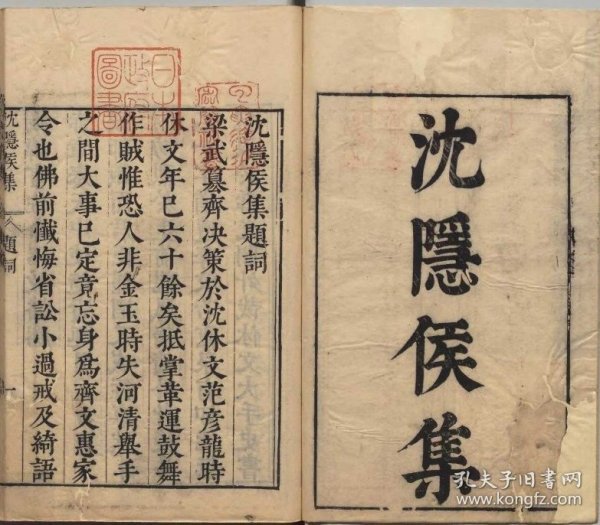 沈隱侯集
沈隱侯集題詞
梁武篡齊决策於沈休文范彥龍時
休文年已六十餘矣抵掌革運鼓舞
作賊惟恐人非金玉時失河清舉手
之間大事已定竟忘身爲齊文惠家
令也佛前懺悔省訟小過戒及綺語
沈隱侯集
題詞
一
日本
政府
圖書
孔夫子旧书网
www.kongfz.com